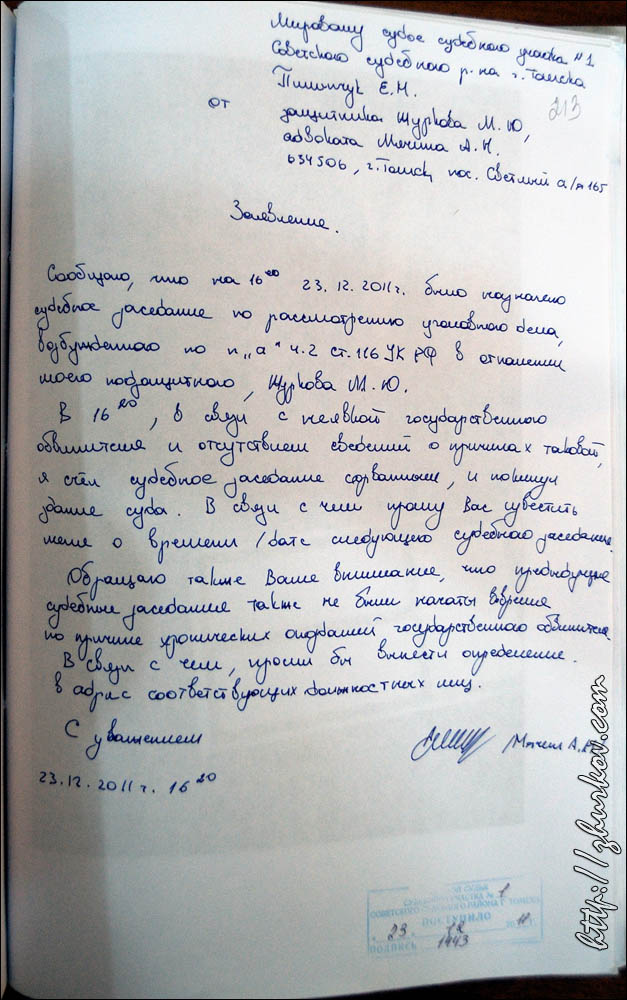 Мировому судье судебного участка №1
Советского судебного р-на г. Томска
Пилипчук Е.Н.
213
от
защитника Журкова М.Ю,
адвоката Мячина А.Н.
634506, г. Томск, пос. Светлый а/я 165
Заявление.
Сообщаю, что на 16 00 23.12.2011г. было назначено
судебное заседание по рассмотрению уголовного дела,
возбужденного по п „а“ ч.2 ст.116 УК РФ в отношении
моего подзащитного, Журкова М.Ю.
В 16 20, в связи с неявкой государственного
обвинителя и отсутствием сведений о причинах таковой,
я счёл судебное заседание сорванным, и покинул
здание суда. В связи с чем прошу Вас известить
меня о времени/дате следующего судебного заседания.
Обращаю также Ваше внимание, что предыдущие
судебные заседания также не были начаты вовремя
по причине хронических опозданий государственного обвинителя.
В связи с чем, просил бы вынести определение
в адрес соответствующих должностных лиц.
С уважением
Мячин А.Н.
23.12.2011г. 16 20
СУДЕБНОГО УЧАСТКА № 1
СОВЕТСКОГО СУДЕБНОГО РАЙОНА Г. ТОМСКА
ПОСТУПИЛО
23 12 2011 г.
ПОДПИСЬ 1443
http://zhurkov.com